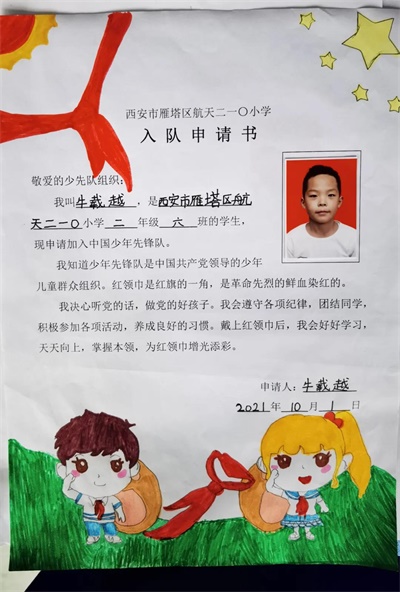 西安市雁塔区航天二一〇小学
入队申请书
敬爱的少先队组织：
我叫牛载越，是西安市雁塔区航
天二一〇小学二年级六班的学生，
现申请加入中国少年先锋队。
我知道少年先锋队是中国共产党领导的少年
儿童群众组织。红领巾是红旗的一角，是革命先烈的鲜血染红的。
我决心听党的话，做党的好孩子。我会遵守各项纪律，团结同学，
积极参加各项活动，养成良好的习惯。戴上红领巾后，我会好好学习，
天天向上，掌握本领，为红领巾增光添彩。
申请人：牛载越
2021年10月1日